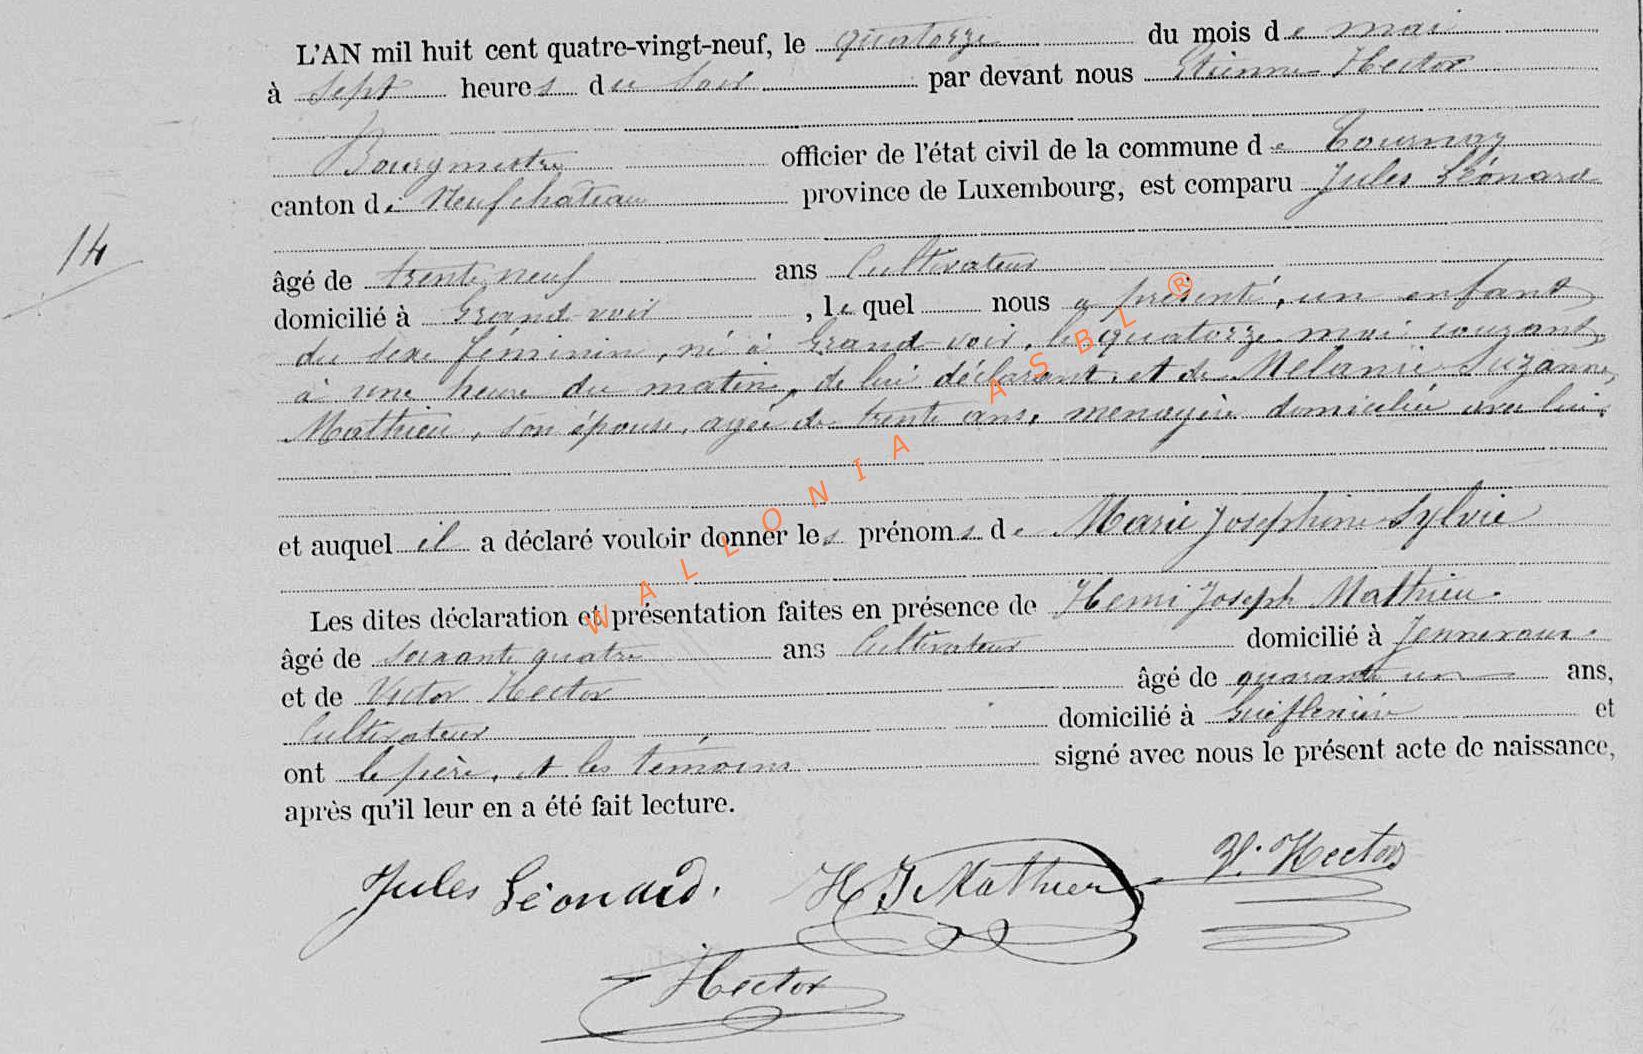 L'AN mil huit cent quatre-vingt-neuf, le quatorze du mois de mai
à sept heures du soir par devant nous Etienne Hector
Bourgmestre officier de l'état civil de la commune de Tournay
canton de Neufchateau province de Luxembourg, est comparu Jules Léonard
14
âgé de trente neuf ans Cultivateur
domicilié à Grand-voir, lequel nous a présenté, un enfant
du sexe féminin, né à Grand-voir, le quatorze mai courant,
à une heure du matin, de lui déclarant, et de Mélanie Suzanne,
Mathieu, son épouse, agée de trente ans, menagère domiciliée avec lui.
et auquel il a déclaré vouloir donner les prénoms de Marie Joséphine Sylvie
Les dites déclaration et présentation faites en présence de Henri Joseph Mathieu.
âgé de soixante quatre ans Cultivateur domicilié à Jenneveaux.
et de Victor Hector âgé de quarante un ans,
Cultivateur domicilié à et
ont le père, et les témoins signé avec nous le présent acte de naissance,
après qu'il leur en a été fait lecture.
Jules Léonard. H J Mathieu V. Hector
Hector
WALLONIA ASBL ®